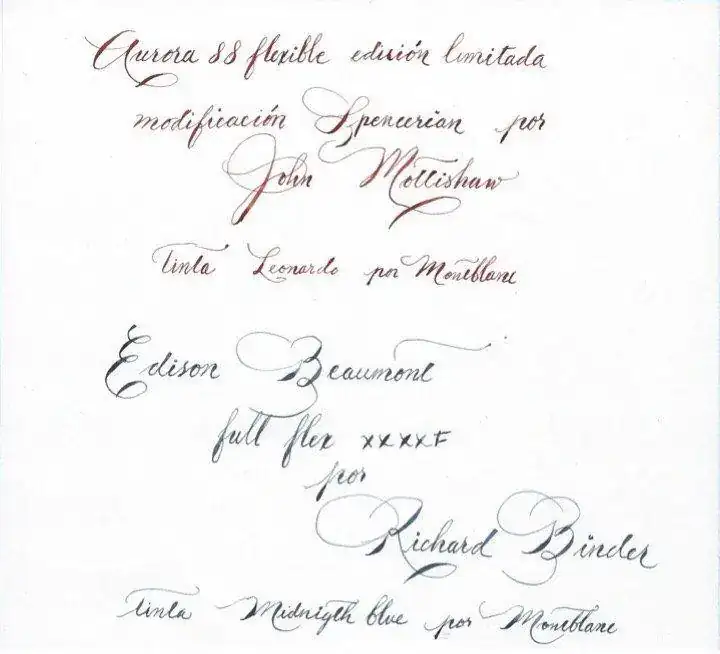 Aurora 88 flexible edición limitada
modificación Spencerian por
John Mottishaw
tinta Leonardo por Montblanc
Edison Beaumont
full flex xxxxF
por
Richard Binder
tinta Midnigth blue por Montblanc